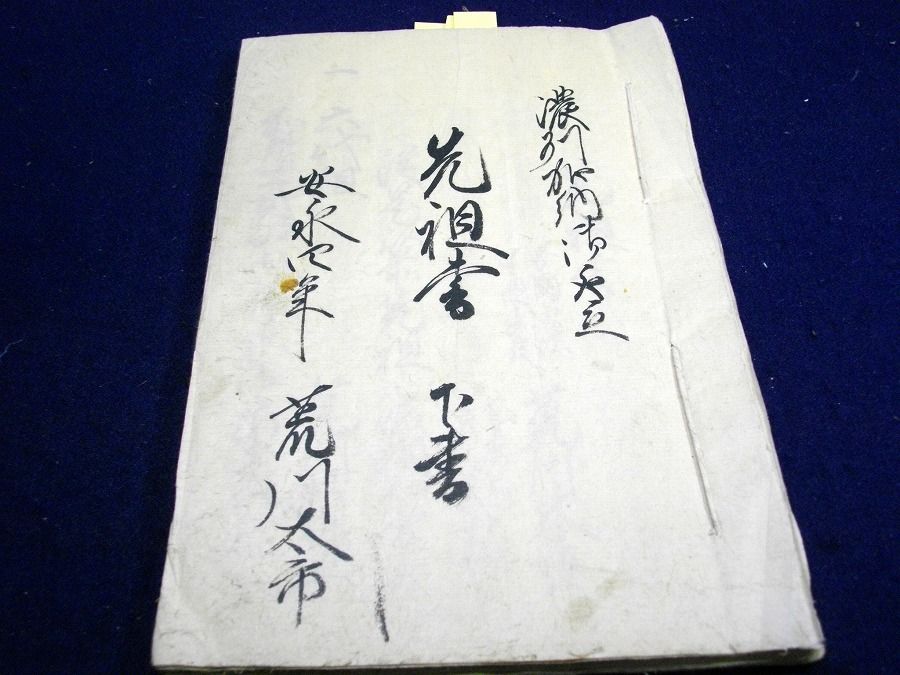 濃州加納御
先祖書 下書
安永四年 荒川太市